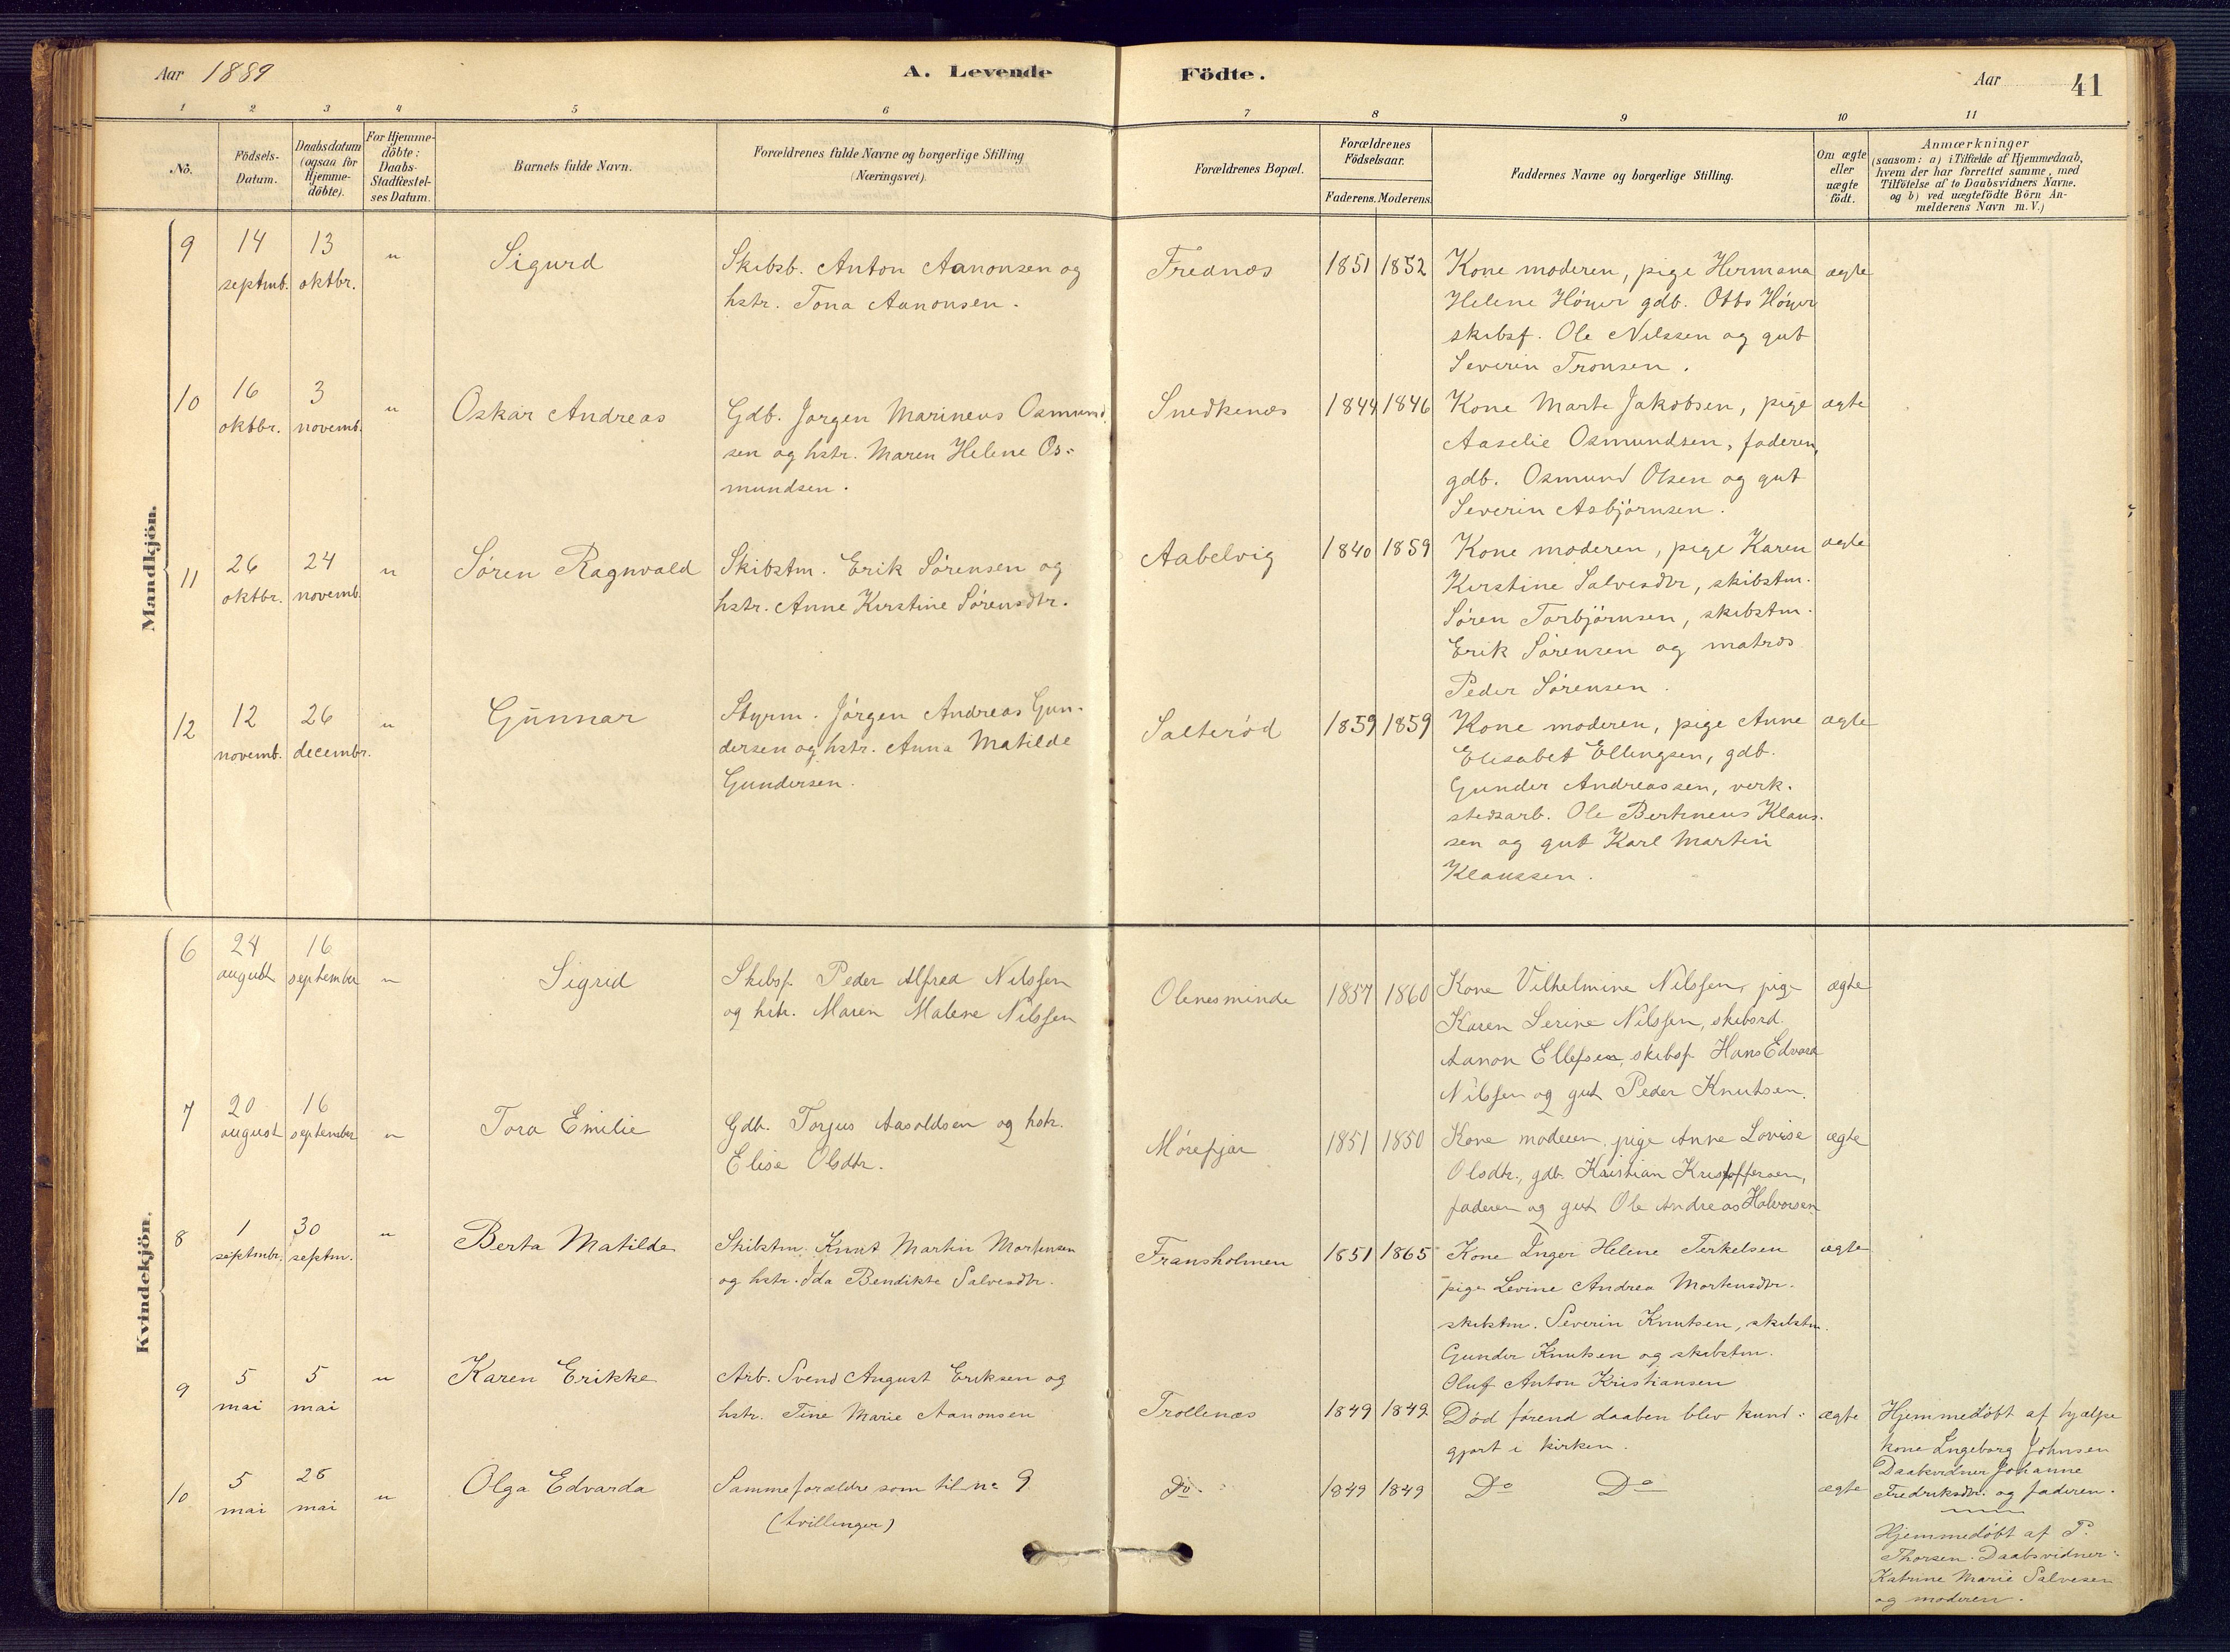 Aar 1889
A. Levende
Födte.
Aar
41
1 2 3 4 5 6 7 8 9 10 11
No.
Födsels-
Datum.
Daabsdatum
(ogsaa for
Hjemme-
döbte).
For Hjemme-
döbte:
Daabs-
Stadfæstel-
ses Datum.
Barnets fulde Navn.
Forældrenes fulde Navne og borgerlige Stilling
(Næringsvei).
Forældrenes Bopæl.
Forældrenes
Födselsaar.
Faderens. Moderens.
Faddernes Navne og borgerlige Stilling.
Om ægte
eller
uægte
födt.
Anmærkninger
(saasom: a) i Tilfælde af Hjemmedaab,
hvem der har forrettet samme, med
Tilföielse af to Daabsvidners Navne.
og b) ved uægtefödte Börn An-
melderens Navn m. V.)
Mandkjön.
9
14
septmb.
13
oktbr.
"
Sigurd
Skibsb. Anton Aanonsen og
hstr. Tona Aanonsen.
Frednæs
1851 1852
Kone moderen, pige Hermana
Helene Höyer gdb. Otto Höyer
skibsf. Ole Nilssen og gut
Severin Tronsen.
ægte
10
16
oktbr.
3
novemb.
"
Oskar Andreas
Gdb. Jørgen Marineus Osmund
sen og hstr. Maren Helene Os=
mundsen.
Snedkenæs
1844 1846
Kone Marte Jakobsen, pige
Aaselie Osmundsen, faderen,
gdb. Osmund Olsen og gut
Severin Asbjörnsen.
ægte
11
26
oktbr.
24
novemb.
"
Søren Ragnvald
Skibstm. Erik Sørensen og
hstr. Anne Kirstine Sørensdtr.
Aabelvig
1840 1859
Kone moderen, pige Karen
Kirstine Salvesdtr, skibstm.
Søren Torbjörnsen, skibstm.
Erik Sørensen og matros
Peder Sørensen.
ægte
12
12
novemb.
26
decembr.
"
Gunnar
Styrm. Jørgen Andreas Gun-
dersen og hstr. Anna Matilde
Gundersen.
Salterød
1859 1859
Kone moderen, pige Anne
Elisabet Ellingsen, gdb.
Gunder Andreassen, verk-
stedsarb. Ole Bertineus Klaus-
sen og gut Karl Martin
Klaussen.
ægte
Kvindekjön.
6
24
august
16
september
"
Sigrid
Skibsf. Peder Alfred Nilssen
og hstr. Maren Malene Nilssen
Olenesminde
1857 1860
Kone Vilhelmine Nilssen, pige
Karen Serine Nilssen, skibsrd.
Aanon Ellefsen, skibsf. Hans Edvard
Nilssen og gut Peder Knutsen.
ægte
7
20
august
16
september
"
Tora Emilie
Gdb. Torjus Aasoldsen og hstr.
Elise Olsdtr.
Mörefjær
1851 1850
Kone moderen, pige Anne Lovise
Olsdtr., gdb. Kristian Kristoffersen,
faderen og gut Ole Andreas Halvorsen
ægte
8
1
septmbr.
30
septm.
"
Berta Matilde
Skibstm. Knut Martin Mortensen
og hstr. Ida Bendikte Salvesdtr.
Fransholmen
1851 1865
Kone Inger Helene Terkelsen
pige Levine Andrea Mortensdtr.
skibstm. Severin Knutsen, skibstm.
Gunder Knutsen og skibstm.
Oluf Anton Kristiansen
ægte
9
5
mai
5
mai
"
Karen Erikke
Arb. Svend August Eriksen og
hstr. Tine Marie Aanonsen
Trollenæs
1849 1849
Död førend daaben blev kund-
gjort i kirken.
ægte
Hjemmedöbt af hjælpe
kone Ingeborg Johnsen
Daabsvidner Johanne
Fredriksdtr. og faderen.
10
5
mai
26
mai
"
Olga Edvarda
Samme forældre som til no 9
(tvillinger)
Do.
1849 1849
Do Do
ægte
Hjemmedöbt af P.
Thorsen. Daabsvidner:
Katrine Marie Salvesen
og moderen.